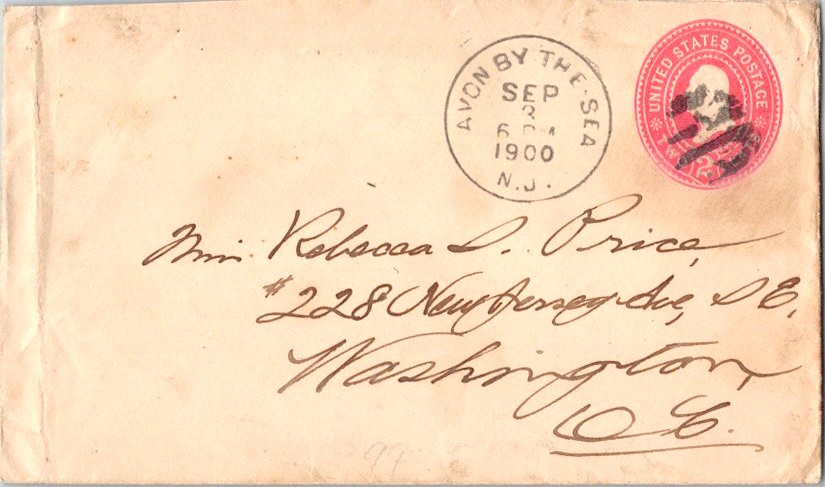 AVON BY THE-SEA
SEP
2
6 PM
1900
N.J.
UNITED STATES POSTAGE
2
Miss Rebecca S. Price,
#228 New Jersey Ave, S E,
Washington,
D C.